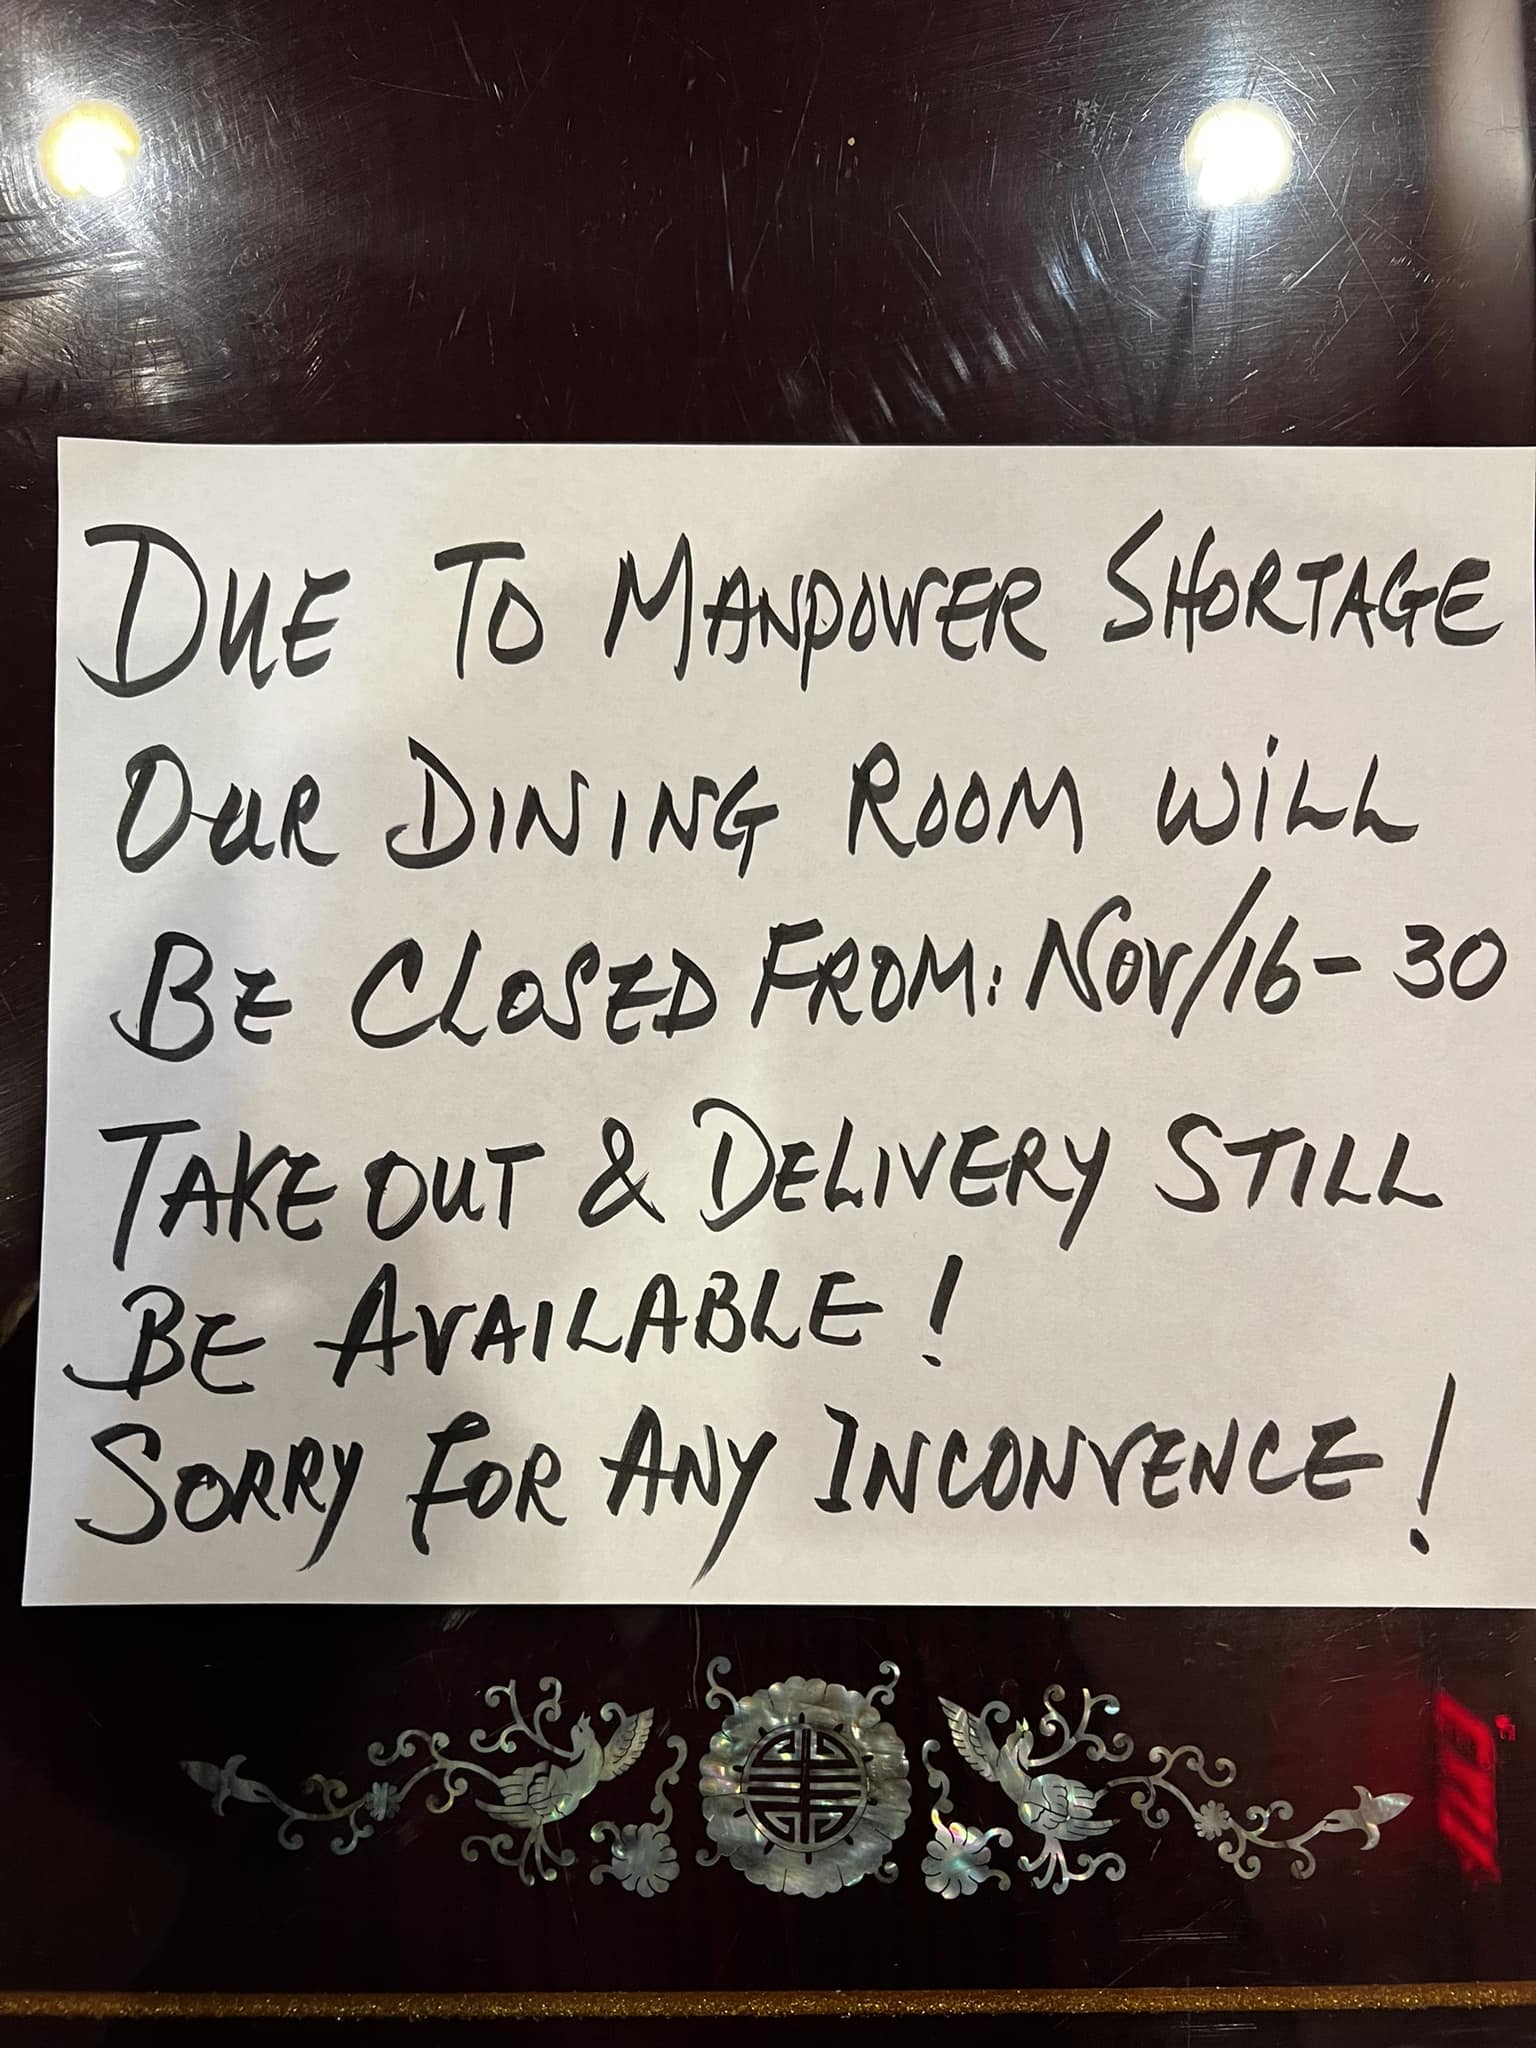 DUE TO MANPOWER SHORTAGE
OUR DINING ROOM WILL
BE CLOSED FROM: NOV/16-30
TAKE OUT & DELIVERY STILL
BE AVAILABLE!
SORRY FOR ANY INCONVENCE!